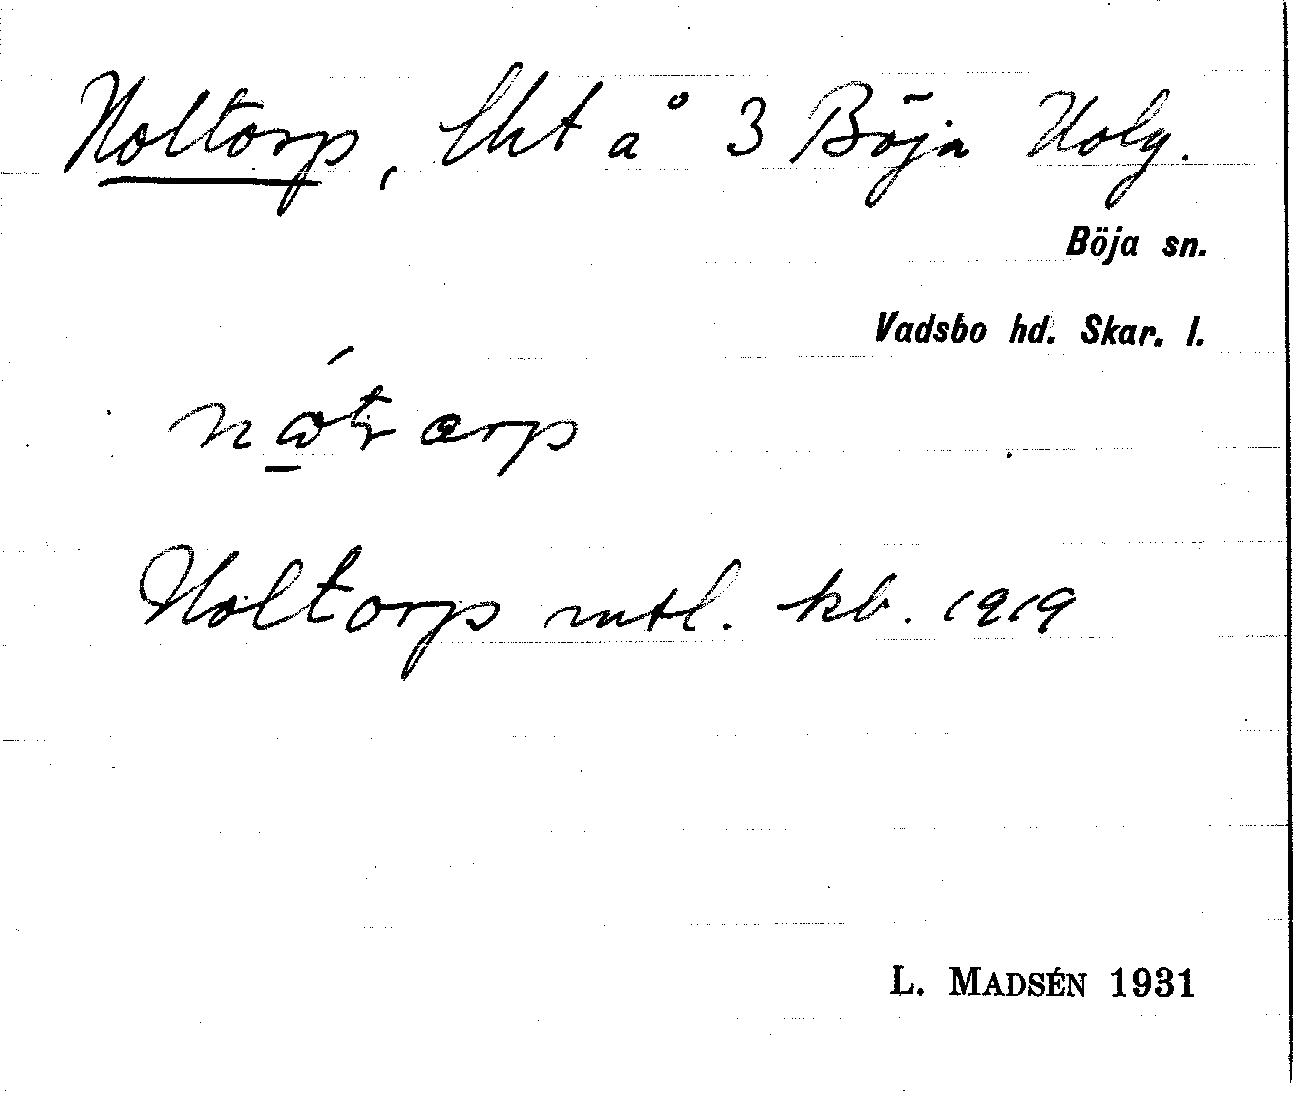 Noltorp, lht å 3 Böja Nolg.
Böja sn.
Vadsbo hd. Skar. l.
Noltorp mtl. kb. 1919
L. MADSÉN 1931